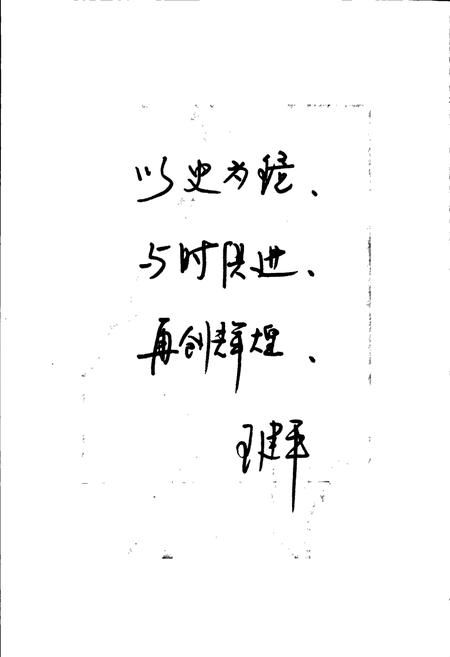 以史为镜、
与时俱进、
再创辉煌、
王建平